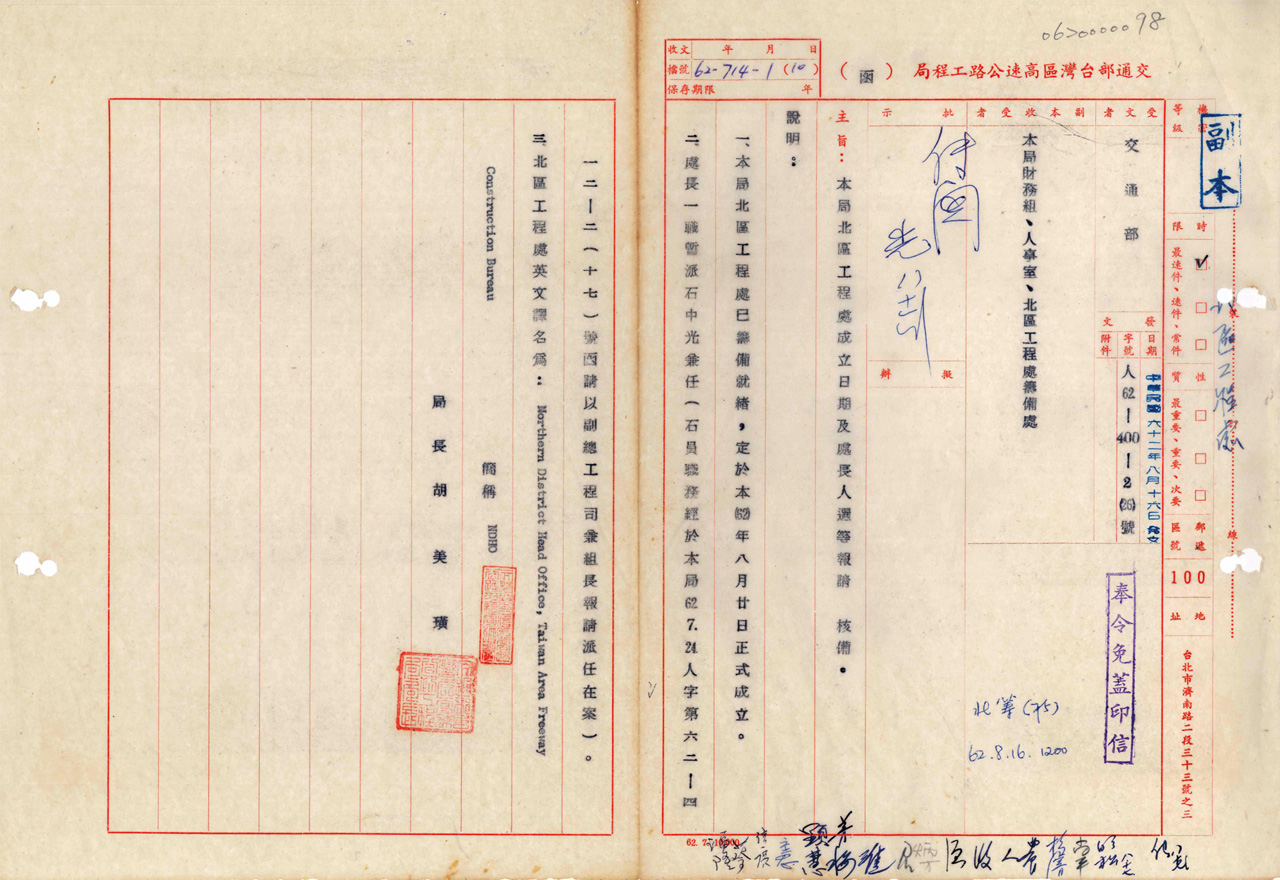 0620000098
交通部台灣區高速公路工程局
（函）
收文 年 月 日
檔號 62-714-1 (10)
保存期限 年
副本
等級
時限
最速件、速件、常件
性質
最重要、重要、次要
郵遞區號
100
地址
台北市濟南路二段三十三號之三
裝
線
受文者
交通部
副本收受者
本局財務組、人事室、北區工程處籌備處
發文
日期
中華民國六十二年八月十六日發文
字號
人62—400—2(26)號
附件
奉令免蓋印信
批示
擬辦
62.8.16.1200
主旨：本局北區工程處成立日期及處長人選等報請 核備。
說明：
一、本局北區工程處已籌備就緒，定於本(62)年八月廿日正式成立。
二、處長一職暫派石中光兼任（石員職務經於本局62.7.24人字第六二—四
一二—二（十七）號函請以副總工程司兼組長報請派任在案）。
三、北區工程處英文譯名為：Northern District Head Office, Taiwan Area Freeway
Construction Bureau
簡稱 NDHO
局長胡美璜